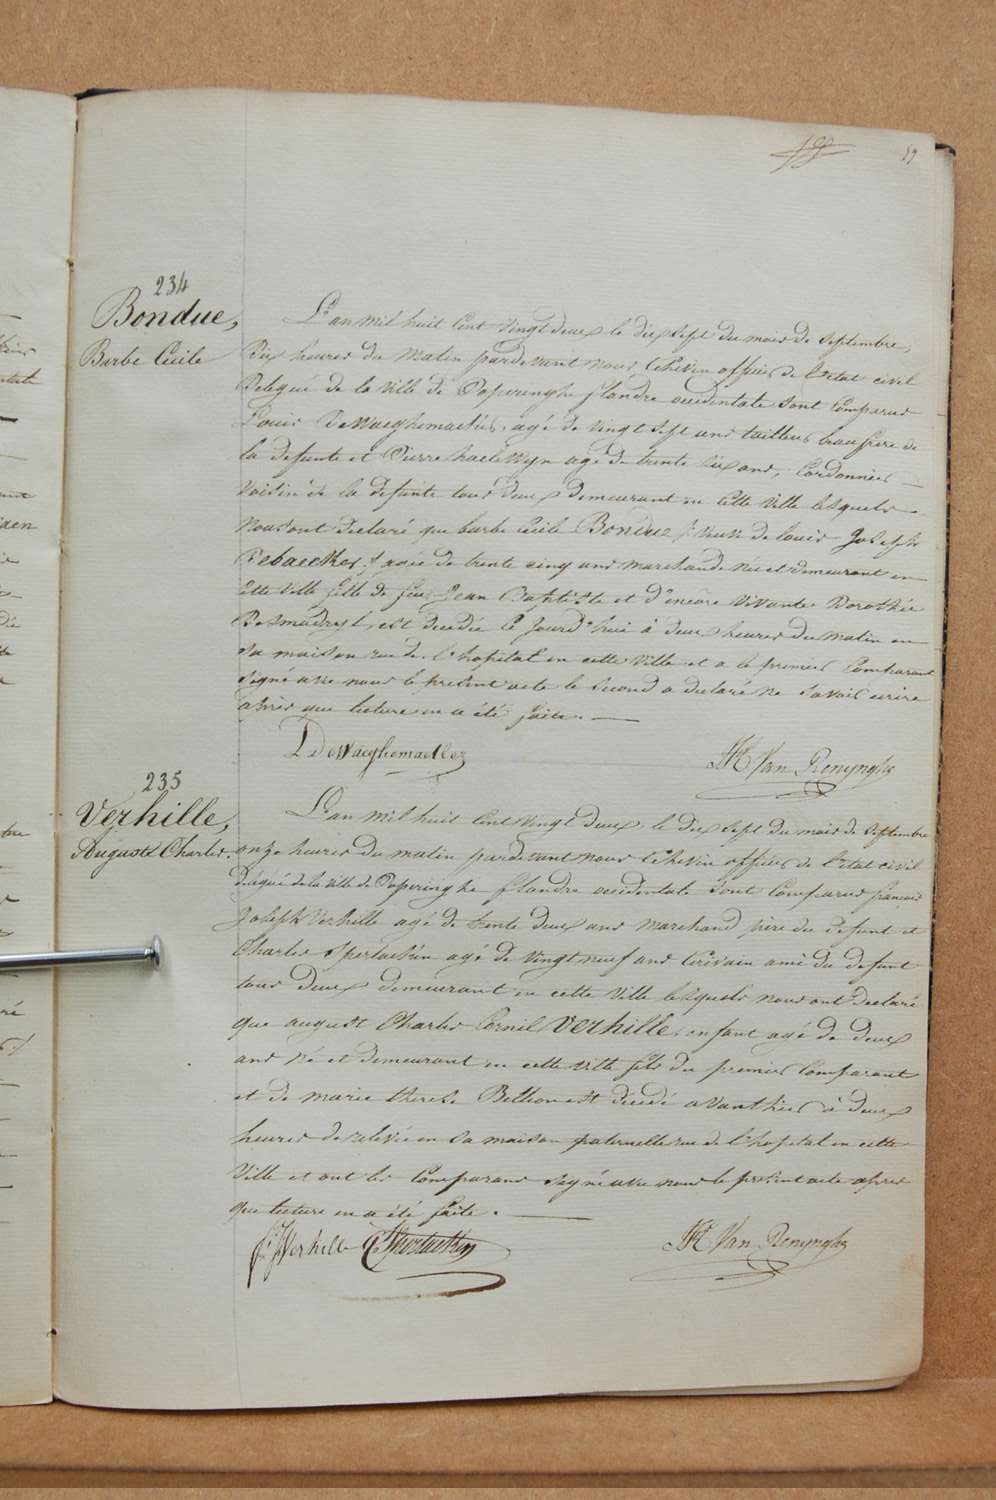 59
234
Bondue,
Barbe Cécile
L'an mil huit Cent vingt deux le dix sept du mois de Septembre
Dix heures du Matin pardevant nous Echevin officier de l'etat civil
Delegué de la ville de Poperinghe flandre occidentale Sont Comparus
Louis DeWaeghemaeker, agé de vingt sept ans tailleur beaufrere de
la defunte et Pierre haelewyn agé de trente six ans, Cordonnier
Voisin de la defunte tous deux demeurant en cette ville lesquels
Nous ont declaré que barbe Cécile Bondue / veuve de Louis Joseph
Debaecker / agée de trente cinq ans marchande née et demeurant en
Cette Ville fille de feu Jean Baptiste et d'encore vivante Dorothée
est decedée ce Jourd'hui à deux heures du Matin en
sa maison rue de l'hopital en cette Ville et a le premier Comparant
signé avec nous le present acte le second a declaré ne Savoir ecrire
après que lecture en a été faite.
L DeWaeghemaeker
Van Renynghe
235
Verhille,
Auguste Charles.
L'an mil huit Cent vingt deux, le dix Sept du mois de Septembre
onze heures du matin pardevant nous Echevin officier de l'etat civil
Délégué de la ville de Poperinghe flandre occidentale Sont Comparus françois
Joseph Verhille agé de trente deux ans Marchand père du defunt et
Charles agé de vingt neuf ans Ecrivain ami du defunt
tous deux demeurant en cette Ville lesquels nous ont declaré
que august Charles Cornil Verhille, enfant agé de deux
ans né et demeurant en cette ville fils du premier Comparant
et de marie therese est décédé avanthier à deux
heures de relevée en sa maison paternelle rue de l'hopital en cette
Ville et ont les Comparans signé avec nous le present acte apres
que lecture en a été faite.
f: J Verhille
Van Renynghe